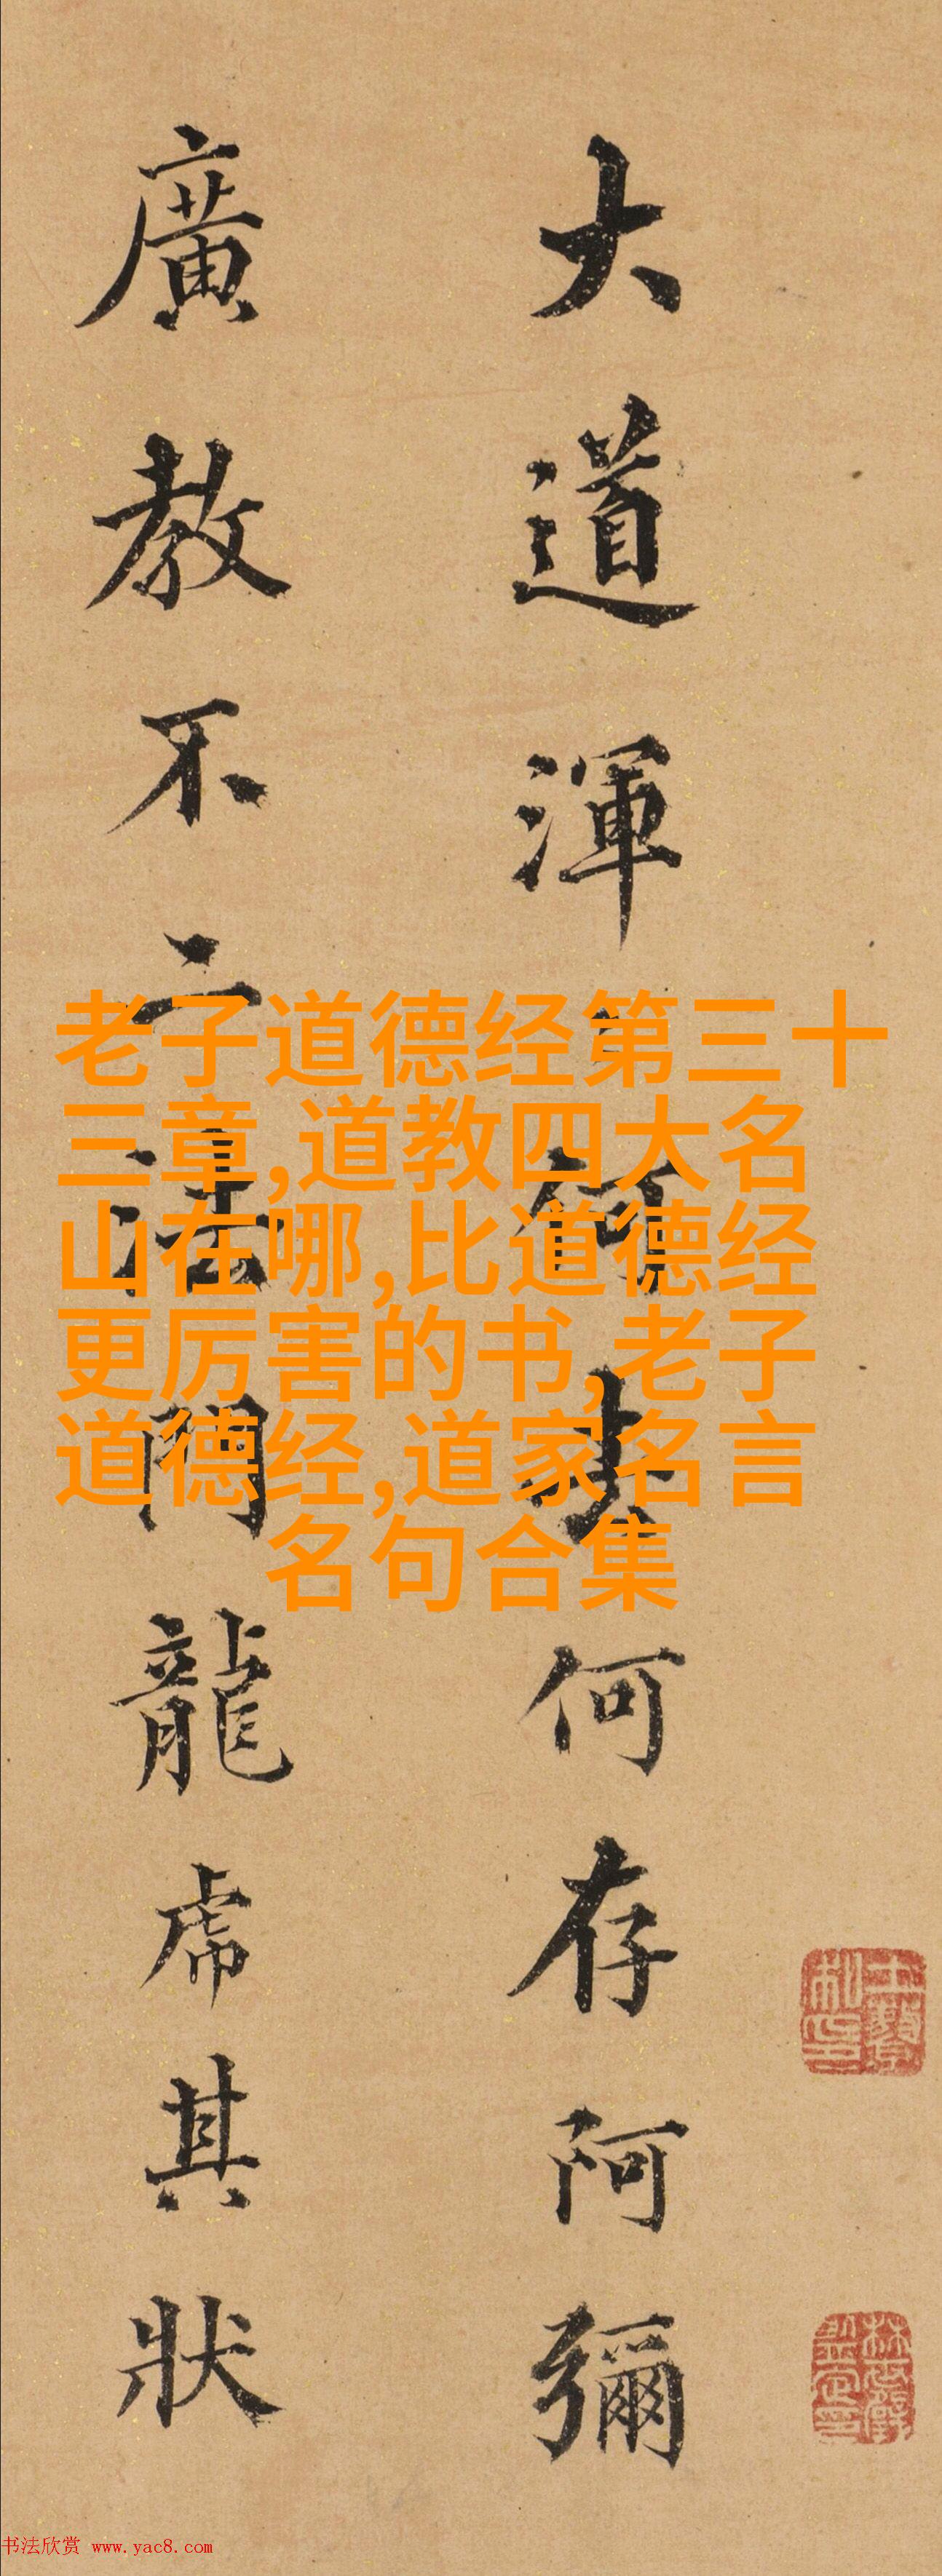 大道渾何去何存阿彌
廣教不二法門龍虎其狀
老子道德经第三十
三章,道教四大名
山在哪,比道德经
更厉害的书,老子
道德经,道家名言
名句合集
书法欣赏 www.yac8.com